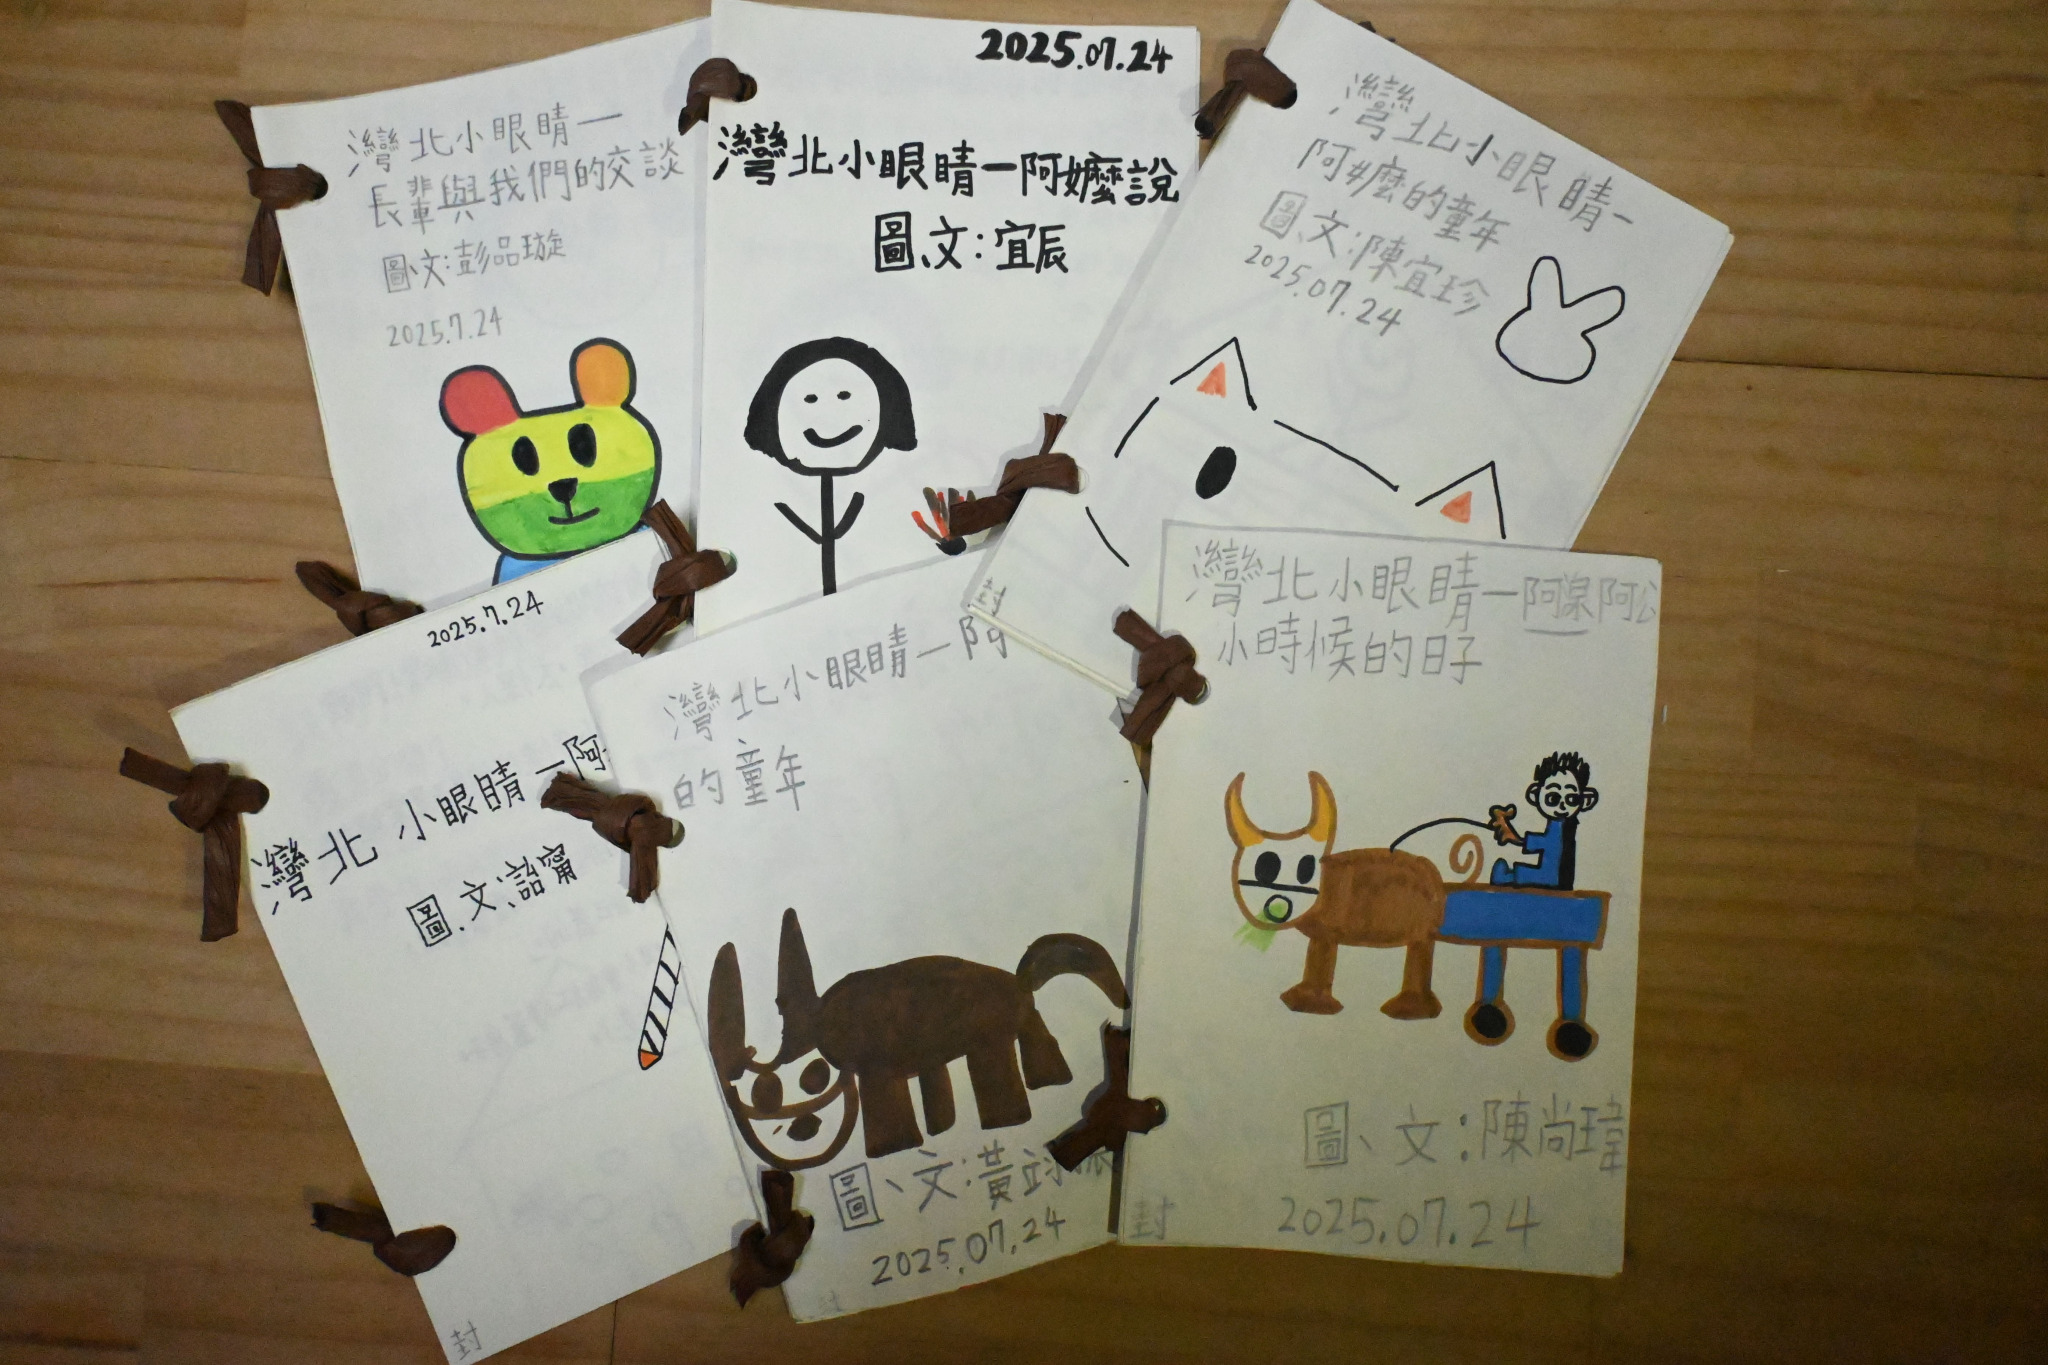 灣北小眼睛一
長輩與我們的交談
圖、文:彭品璇
2025.7.24
2025.07.24
灣北小眼睛一阿嬤說
圖、文:宜辰
灣北小眼睛一
阿嬤的童年
圖、文:陳宜珍
2025.07.24
封
2025.7.24
灣北小眼睛一阿
圖、文:詔甯
封
灣北小眼睛一阿
的童年
圖、文:黃翊
2025.07.24
灣北小眼睛一阿 阿公
小時候的日子
圖、文:陳尚瑋
2025.07.24
封